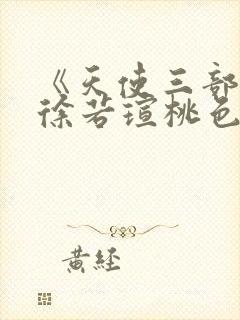 《天使三部
徐若瑄桃色
黄经